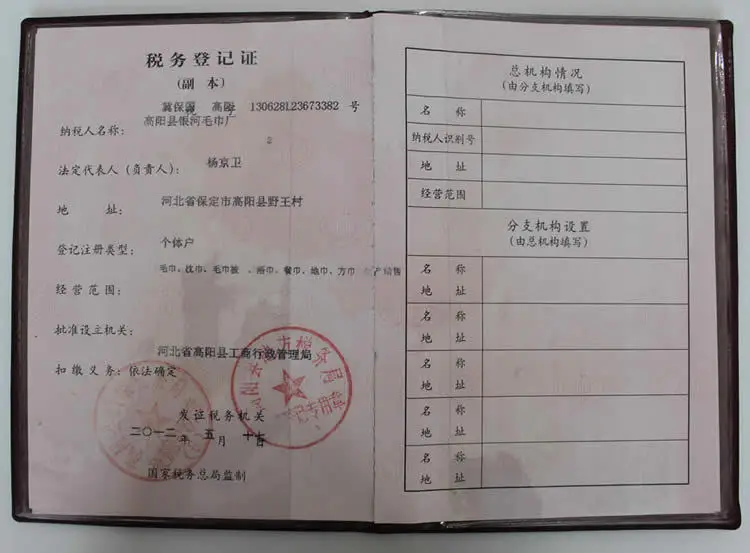 税务登记证
(副 本)
冀保国 高阳 130628L23673382 号
纳税人名称: 高阳县银河毛巾厂
2
法定代表人(负责人): 杨京卫
地 址: 河北省保定市高阳县野王村
登记注册类型: 个体户
经营范围: 毛巾、枕巾、毛巾被、浴巾、餐巾、地巾、方巾 生产销售
批准设立机关: 河北省高阳县工商行政管理局
扣缴义务: 依法确定
发证税务机关
二〇一二年 五月 十七日
国家税务总局监制
总机构情况
(由分支机构填写)
名 称
纳税人识别号
地 址
经营范围
分支机构设置
(由总机构填写)
名 称
地 址
名 称
地 址
名 称
地 址
名 称
地 址
名 称
地 址